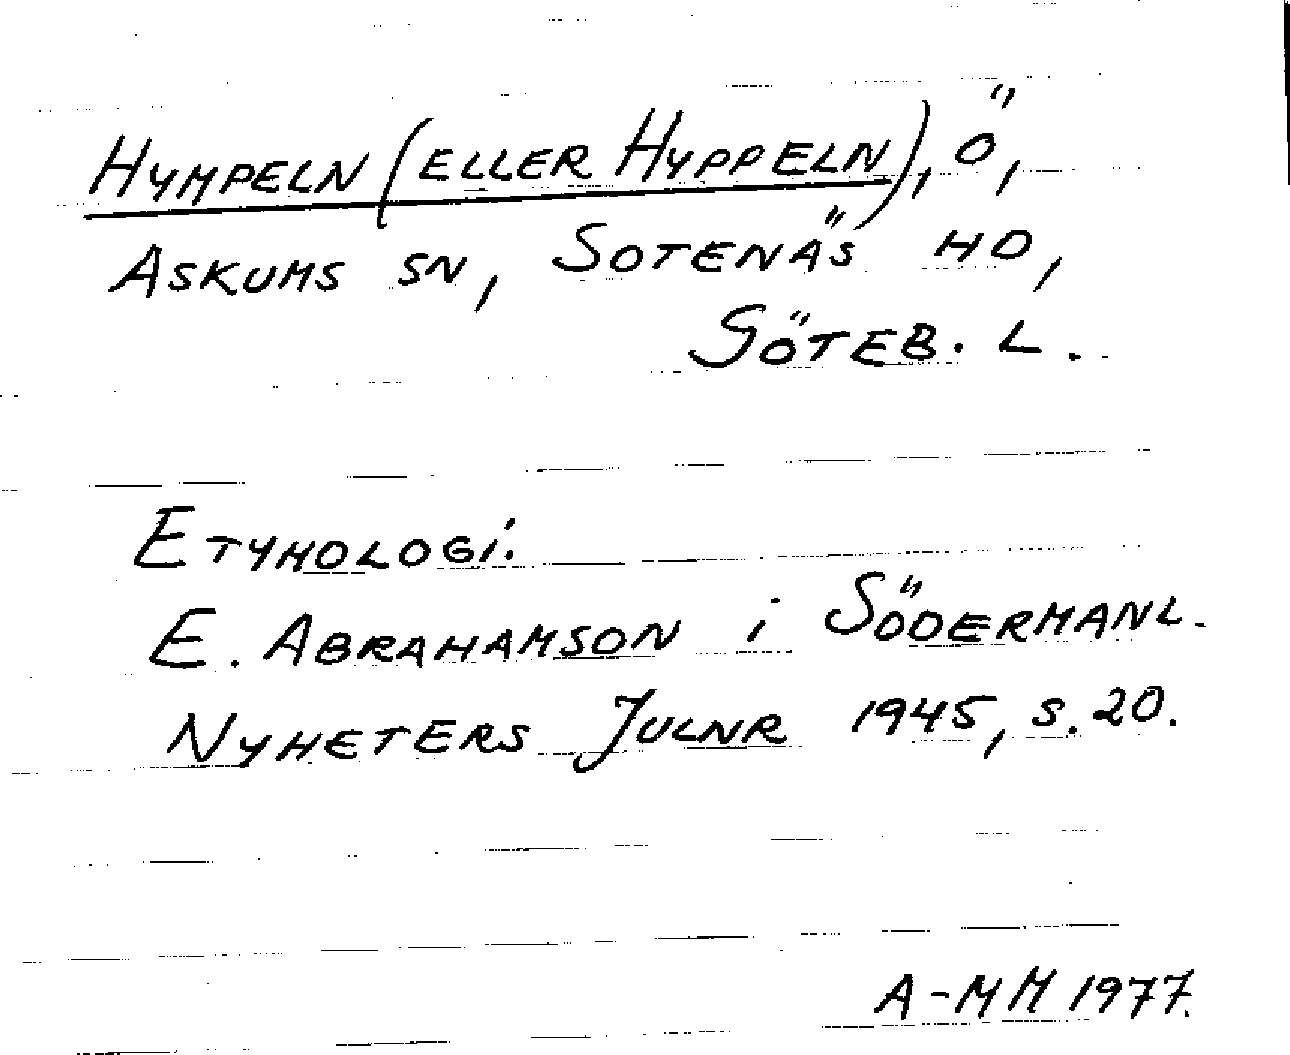 HYMPELN (ELLER HYPPELN), Ö,
ASKUMS SN, SOTENÄS HD,
GÖTEB. L.
ETYMOLOGI.
E. ABRAHAMSON i SÖDERMANL.
NYHETERS JULNR 1945, S. 20.
A-MM 1977.